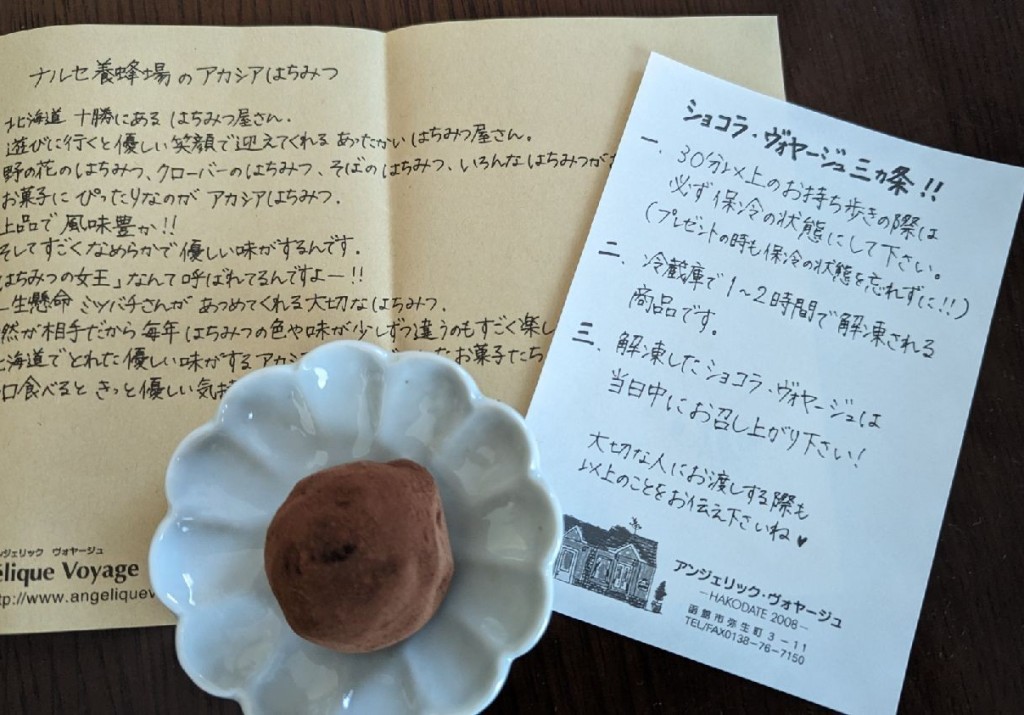 ナルセ養蜂場のアカシアはちみつ
北海道 十勝にある はちみつ屋さん.
遊びに行くと優しい笑顔で迎えてくれる あったかい はちみつ屋さん。
野の花のはちみつ、クローバーのはちみつ、そばのはちみつ、いろんなはちみつが
お菓子に ぴったりなのが アカシアはちみつ.
上品で 風味豊か!!
そしてすごくなめらかで優しい味がするんです.
はちみつの女王」なんて呼ばれてるんですよー!!
一生懸命 ミツバチさんが あつめてくれる大切なはちみつ.
然が相手だから 毎年 はちみつの色や味が少しずつ違うのもすごく楽し
海道でとれた優しい味がするアカシ
たお菓子たち
口食べると きっと優しい気
ンジェリック ヴォヤージュ
élique Voyage
tp://www.angeliquev
ショコラ・ヴォヤージュ三ヵ条!!
一、30分以上のお持ち歩きの際は
必ず保冷の状態にして下さい。
(プレゼントの時も保冷の状態を忘れずに!!)
二、冷蔵庫で1~2時間で解凍される
商品です。
三、解凍したショコラ・ヴォヤージュは
当日中にお召し上がり下さい!
大切な人にお渡しする際も
以上のことをお伝え下さいね♥
アンジェリック・ヴォヤージュ
—HAKODATE 2008—
函館市弥生町3-11
TEL/FAX0138-76-7150